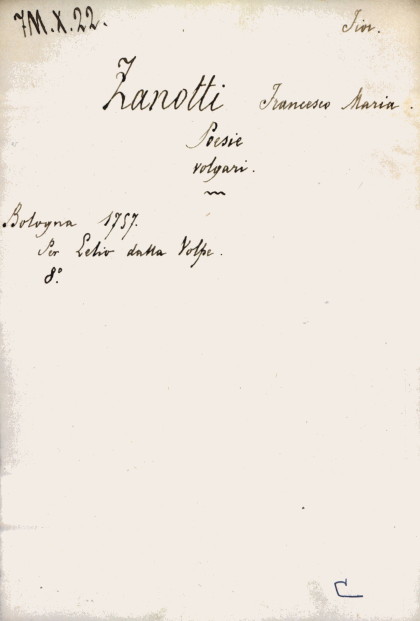 7M.X.22.
Fior.
Zanotti Francesco Maria.
Poesie
volgari.
Bologna 1757.
Per Lelio dalla Volpe.
8.°
C